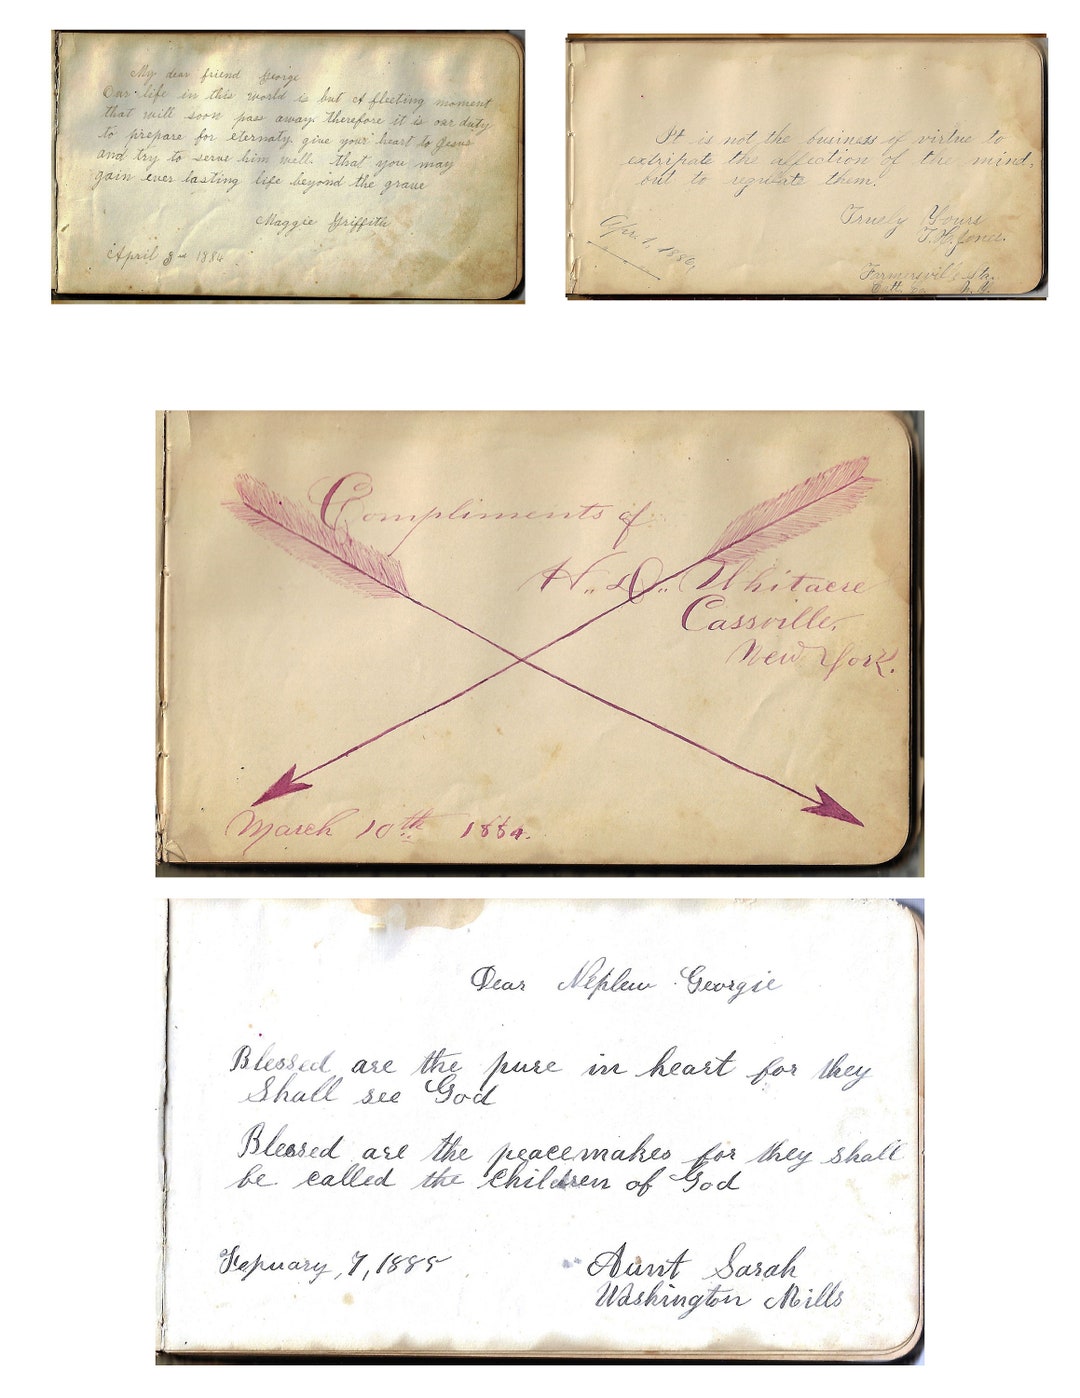 My dear friend George
Our life in this world is but A fleeting moment
that will soon pass away. therefore it is our duty
to prepare for eternaty. give your heart to Jesus
and try to serve him well. that you may
gain ever lasting life beyond the grave
Maggie Griffith
April 3rd 1884
It is not the business of virtue to
extripate the affection of the mind,
but to regulate them.
Truely Yours
T. H. Jones.
Apr. 1, 1886,
Farmersvil Sta.
Catt. Co. N. Y.
Compliments of
H. D. Whitacre
Cassville,
New York.
March 10th 1884.
Dear Nephew Georgie
Blessed are the pure in heart for they
Shall see God
Blessed are the peacemakes for they shall
be called the children of God
Aunt Sarah
Washington Mills
Fepruary, 7, 1885